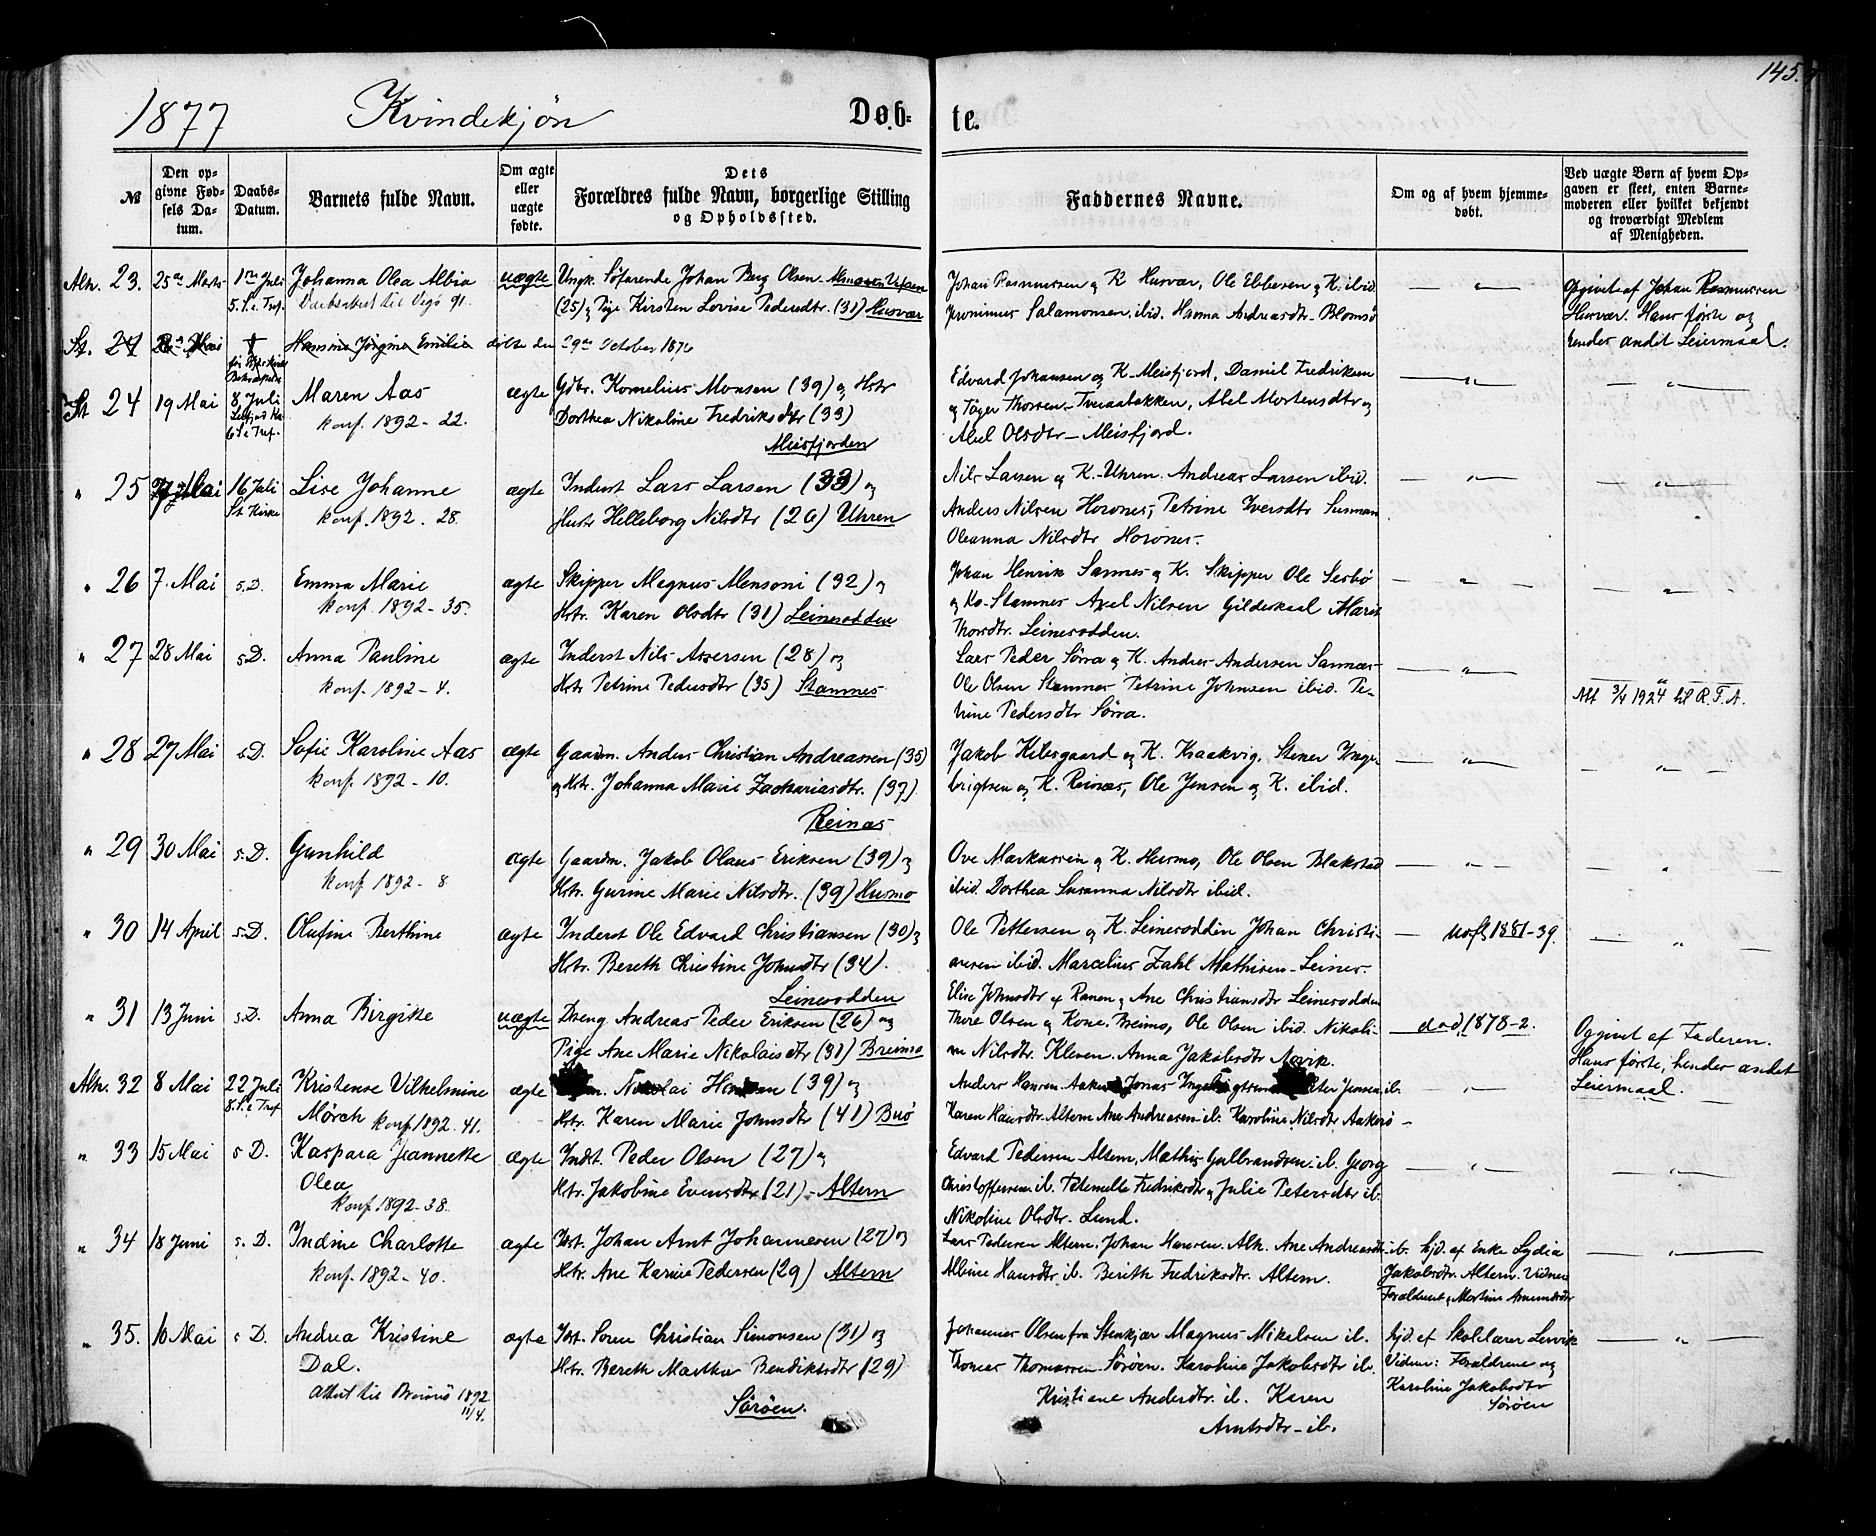 145.
1877 Kvindekjøn Døb= te.
№
Den op=
givne Fød=
sels Da=
tum.
Daabs=
Datum.
Barnets fulde Navn.
Om ægte
eller
uægte
fødte.
Dets
Forældres fulde Navn, borgerlige Stilling
og Opholdssted.
Faddernes Navne.
Om og af hvem hjemme=
døbt.
Ved uægte Børn af hvem Op=
gaven er skeet, enten Barne=
moderen eller hvilket bekjendt
og troværdigt Medlem
af Menigheden.
Alh. 23. 25de Marts 1ste Juli Johanna Olea Albia uægte Ungk. Søfarende Johan Berg Olsen
5. S. e. Tref. til Vegø 91. (25) og Pige Kirsten Lovise Pedersdtr. (31) Husvær
Johan Rasmussen og K. Husvær, Ole Ebbesen og K. ibid.
Jeronimus Salamonsen, ibid. Hanna Andreasdtr. Blomsø
Opgivet af Johan Rasmussen
Husvær. Hans første og
hendes andet Leiermaal.
St. 24 Mai Hansine Jørgine Emilie døbte den 29de October 1876
St 24 19 Mai 8 Juli Maren Aas ægte Gdbr. Kornelius Monsen (39) og Hstr
6 S. e. Tref. konf. 1892 - 22. Dorthea Nikoline Fredriksdtr (33)
Meisfjorden
Edvard Johansen og K. Meisfjord, Daniel Fredriksen
og Tøger Thorsen - Tveraabakken, Abel Mortensdtr og
Abel Olsdtr - Meisfjord.
" 25 Mai 16 Juli Lise Johanne ægte Inderst Lars Larsen (33) og
St. Kirke konf. 1892. 28. Hustr Helleborg Nilsdtr (26) Uhren
Nils Larsen og K. Uhren. Andreas Larsen ibid.
Anders Nilsen Horsnes, Petrine Iversdtr
Oleanna Nilsdtr Horsnes.
" 26 7. Mai s.D. Emma Marie ægte Skipper Magnus Monsoni (32) og
konf. 1892 - 35. Hstr. Karen Olsdtr (31) Leinesodden
Johan Henrik Sannes og K. Skipper Ole
og Ko. Stamnes Axel Nilsen Gildeskaal Marit
Thorsdtr. Leinesodden.
" 27 28 Mai s.D. Anna Pauline ægte Inderst Nils Assersen (28) og
konf. 1892 - 4. Hstr Petrine Pedersdtr (35) Stamnes
Lars Peder Sørra og K. Andreas Andersen Sannes -
Ole Olsen Stamnes Petrine Johnsen ibid. Pe-
trine Pedersdtr Sørra.
Att 3/4 1924 til R.T.A.
" 28 27 Mai s.D. Sofie Karoline Aas ægte Gaardm. Anders Christian Andreassen (35)
konf. 1892 - 10. og Hstr. Johanna Marie Zachariasdtr. (37)
Reinæs
Jakob Kilesgaard og K. Kaakvig, Stiner Inge-
brigtsen og K. Reinæs, Ole Jensen og K. ibid.
" 29 30 Mai s.D. Gunhild ægte Gaardm. Jakob Olaus Eriksen (39) og
konf 1892 - 8 Hstr. Gurine Marie Nilsdtr. (39) Husmo
Ove Markussen og K. Husmo, Ole Olsen Blakstad
ibid. Dorthea Susanna Nilsdtr ibid.
" 30 14 April s.D. Olufine Berthine ægte Inderst Ole Edvard Christiansen (30) og
Hstr. Bereth Christine Johnsdtr (34).
Leinesodden
Ole Pettersen og K. Leinesodden Johan Christi-
ansen ibid. Marcelius Zahl Mathisen - Leines.
Elise Johnsdtr af Ranen og Ane Christiansdtr Leinesodden
1881-39.
" 31 13 Juni s.D. Anna Birgitte uægte Dreng Andreas Peder Eriksen (26) og
Pige Ane Marie Nikolaisdtr (31) Breimo
Thore Olsen og Kone Breimo, Ole Olsen ibid. Nikoli-
ne Nilsdtr. Kleven. Anna Jakobsdtr
død, 1878-2.
Opgivet af Faderen.
Hans første, hendes andet
Leiermaal.
Alh. 32 8 Mai 22 Juli Kristense Vilhelmine ægte Nikolai Hansen (39) og
8. S. e. Tref Mörch konf. 1892. 41. Hstr. Karen Marie Johnsdtr (41) Buø
Anders Hansen Jonas Jensen ib.
Karen Hansdtr. Altern Ane Andreasen ib. Karoline Nilsdtr Aakerø
" 33 15 Mai s D. Kaspara Jeannette ægte Indst. Peder Olsen (27) og
Olea Hstr. Jakobine Evensdtr (21) - Altern
konf. 1892 - 38.
Edvard Pedersen Altern, Mathis Gulbrandsen ib. Georg
Christoffersen ib. Fredriksdtr og Julie Petersdtr ib.
Nikoline Olsdtr. Lund.
" 34 18 Juni s. D. Indine Charlotte ægte Indst. Johan Arnt Johannesen (27) og
konf. 1892 - 40. Hstr. Ane Karine Pedersen (29) Altern
Lars Pedersen Altern. Johan Hansen. Alh. Ane Andreasdtr ib.
Albine Hansdtr ib. Berith Fredriksdtr. Altern.
hjd. af Enke Lydia
Jakobsdtr. Altern. Vidner
Forældrene og Martine Amundsdtr
" 35. 10 Mai s D. Andrea Kristine ægte Indst. Soren Christian Simonsen (31) og
Dal. Hstr. Bereth Marthea Bendiktsdtr (29)
Attest til Brønnø 1892 11/4.
Sørøen.
Johannes Olsen fra Stenkjær Magnus Mikelsen ib.
Thomas Thomassen Sørøen. Karoline Jakobsdtr ib.
Kristiane Andersdtr. ib. Karen
Arntsdtr - ib.
hjd. af Skolelærer Lervik
Vidner: Forældrene og
Karoline Jakobsdtr
Sørøen